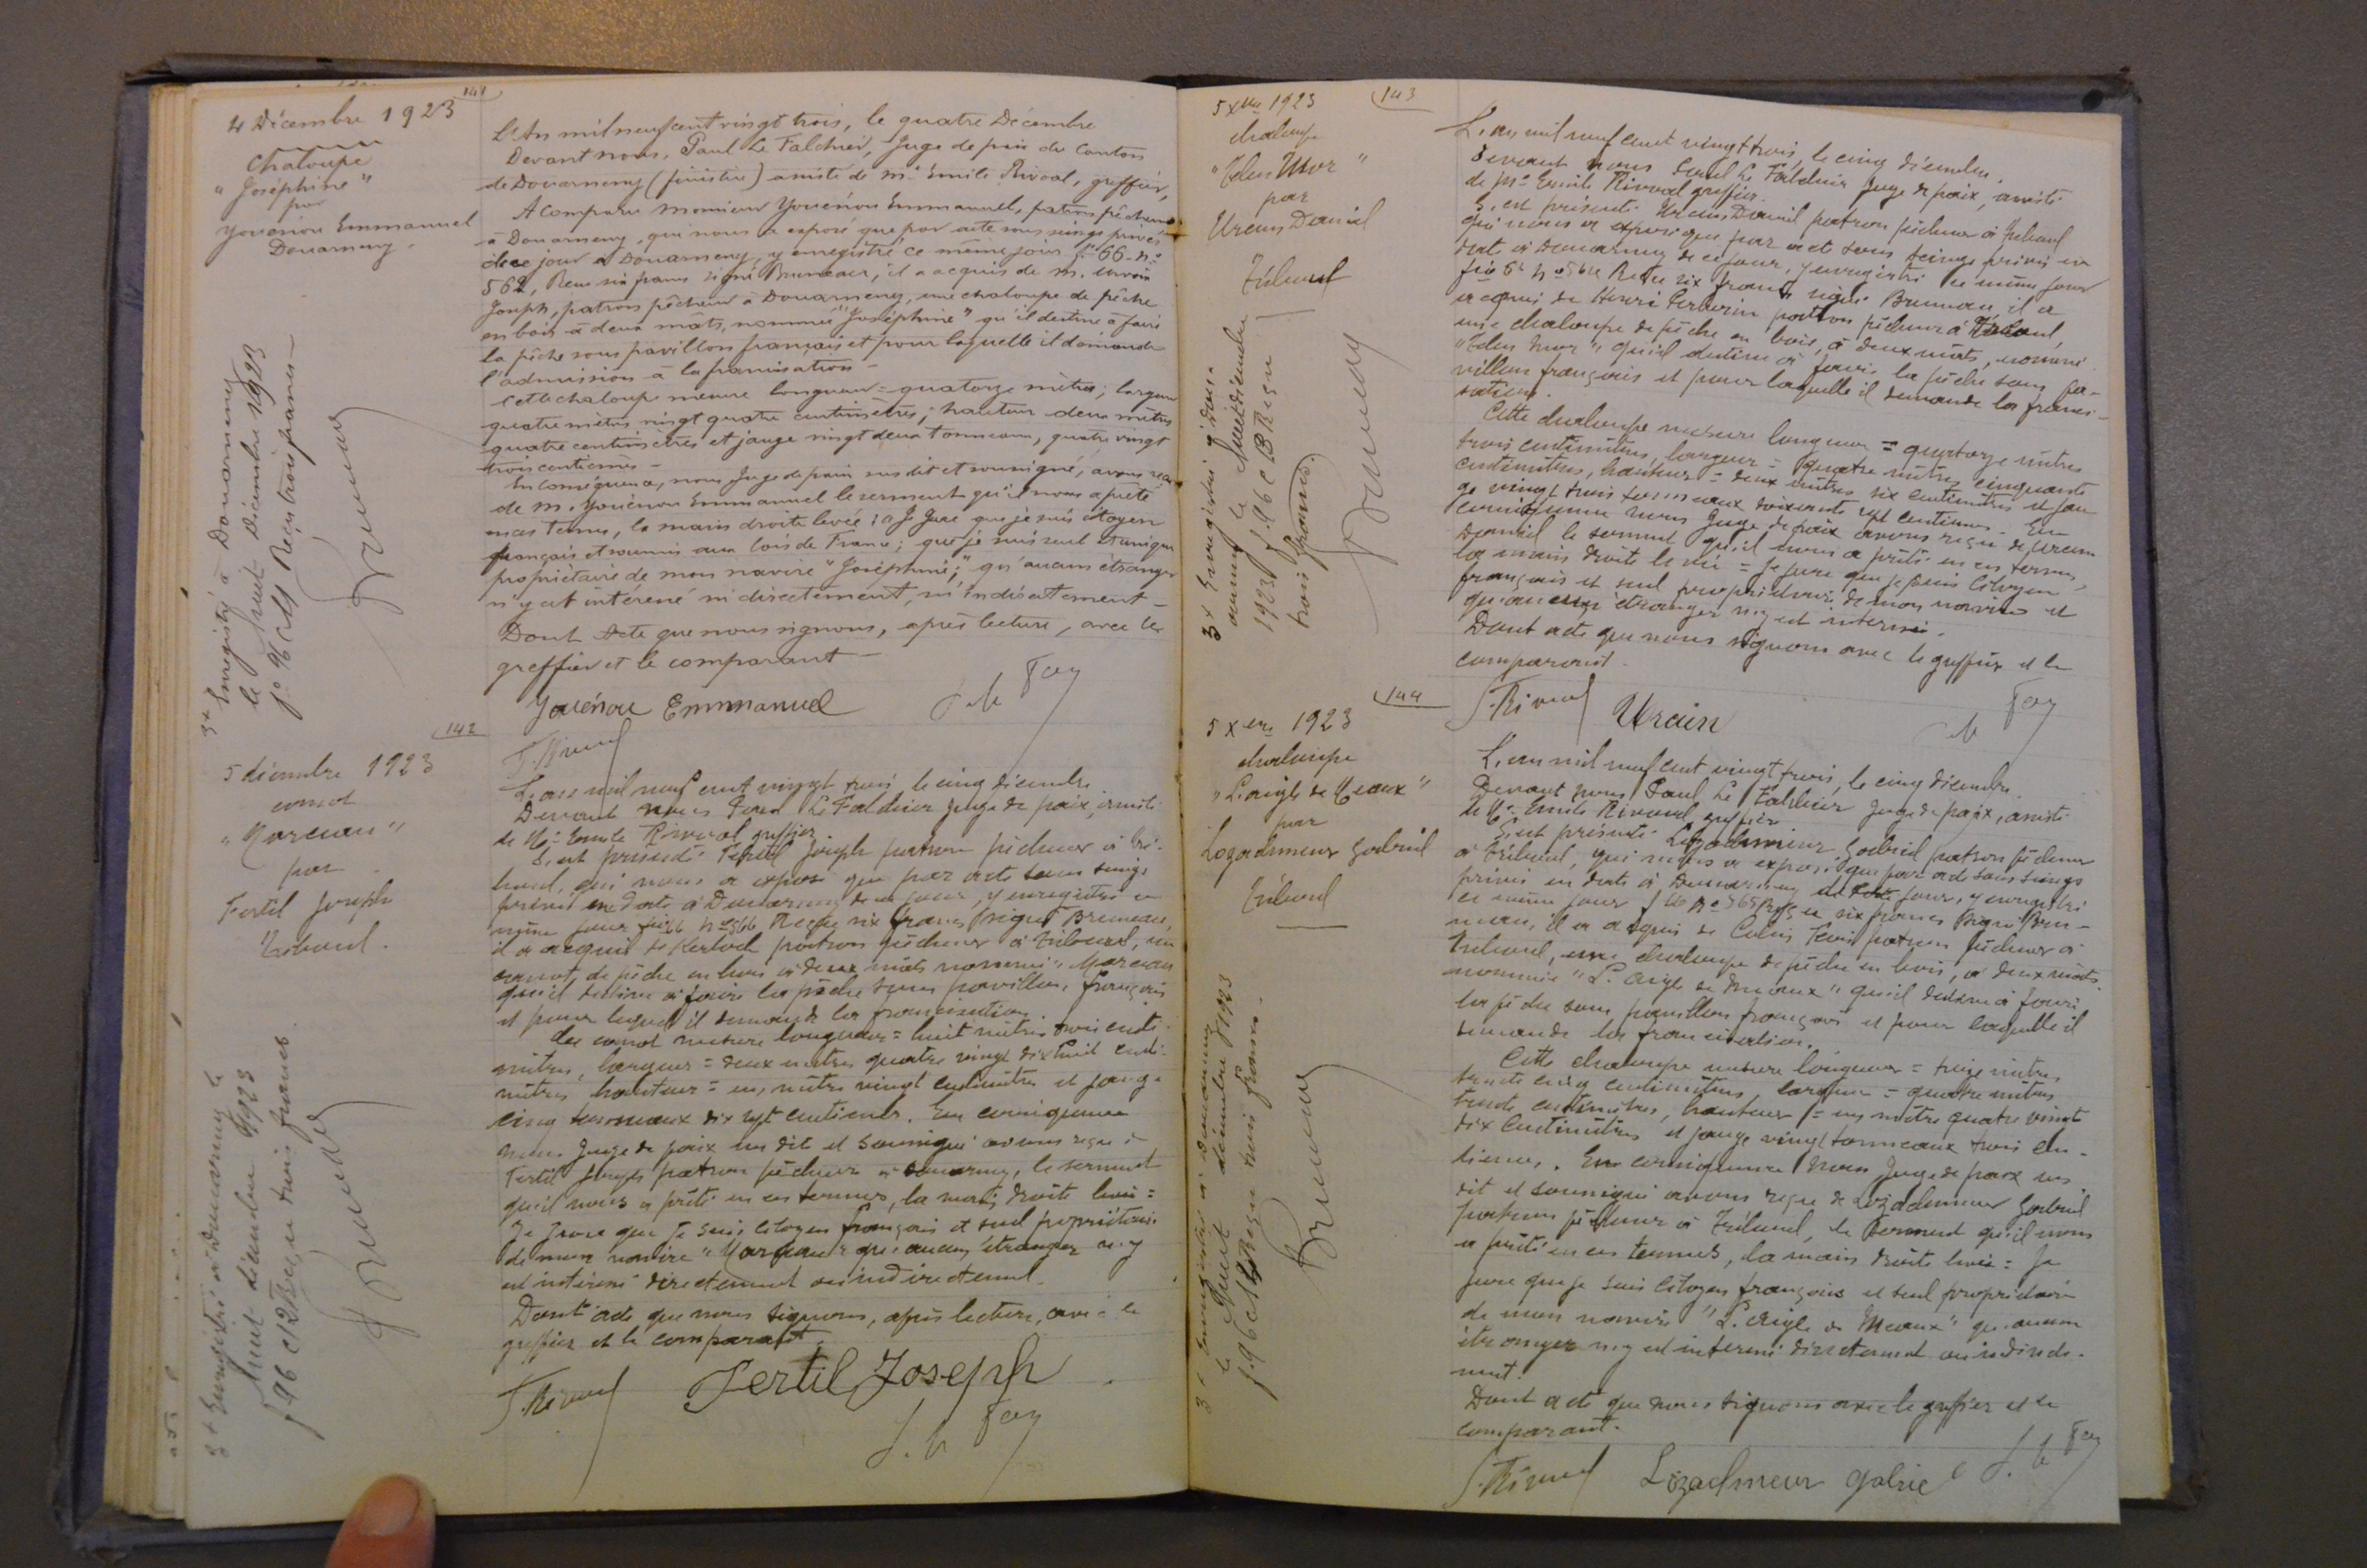 141
4 Décembre 1923
Chaloupe
"Joséphine"
par
Youénou Emmanuel
Douarnenez.
L'An mil neuf cent vingt trois, le quatre Décembre
Devant nous, Paul Le Falchier, Juge de paix du Canton
de Douarnenez (finistère) assisté de Me Emile Rivoal, greffier,
A Comparu Monsieur Youénou Emmanuel, patron pêcheur
à Douarnenez, qui nous a exposé que par acte sous seings privés
de ce jour à Douarnenez, y enregistré ce même jour fo 66 no
562, Reçu six francs signé Bruneau, il a acquis de M.
Joseph, patron pêcheur à Douarnenez, une chaloupe de pêche
en bois à deux mâts, nommée "Joséphine" qu'il destine à faire
la pêche sous pavillon français et pour laquelle il demande
l'admission à la francisation -
Cette chaloupe mesure longueur = quatorze mètres; largeur
quatre mètres vingt quatre centimètres; hauteur deux mètres
quatre centimètres et jauge vingt deux tonneaux, quatre vingt
trois centièmes -
En conséquence, nous Juge de paix sus dit et soussigné, avons reçu
de M. Youénou Emmanuel le serment qu'il nous a prêté
en ces termes, la main droite levée : "Je Jure que je suis citoyen
français et soumis aux lois de France; que je suis seul et unique
propriétaire de mon navire "Joséphine"; qu'aucun étranger
n'y est intéressé ni directement, ni indirectement -
Dont Acte que nous signons, après lecture, avec le
greffier et le comparant -
Youénou Emmanuel
E. Rivoal
3+ Enregistré à Douarnenez
le huit Décembre 1923
fo 96 Reçu trois francs -
Bruneau
142
5 décembre 1923
canot
"Marceau"
par
Fertil Joseph
Tréboul.
L'an mil neuf cent vingt trois le cinq décembre
Devant nous Paul Le Falchier Juge de paix, assisté
de Me Emile Rivoal greffier
S'est présenté Fertil Joseph patron pêcheur à Tré-
boul, qui nous a exposé que par acte sous seings
privés en date à Douarnenez de ce jour, y enregistré ce
même jour fo 66 no 566 Reçu six francs signé Bruneau,
il a acquis de Kerloch patron pêcheur à Tréboul, un
canot de pêche en bois à deux mâts nommé "Marceau
qu'il destine à faire la pêche sous pavillon français
et pour lequel il demande la francisation.
Ce canot mesure longueur = huit mètres trois centi-
mètres, largeur = deux mètres quatre vingt dix huit centi-
mètres hauteur = un mètre vingt centimètres et jauge
cinq tonneaux dix sept centièmes. En conséquence
nous Juge de paix sus dit et soussigné avons reçu de
Fertil Joseph patron pêcheur à Douarnenez, le serment
qu'il nous a prêté en ces termes, la main droite levée =
Je Jure que je suis citoyen français et seul propriétaire
de mon navire "Marceau" qu'aucun étranger n'y
est intéressé directement ou indirectement.
Dont acte que nous signons, après lecture, avec le
greffier et le comparant.
E. Rivoal Fertil Joseph
3+ Enregistré à Douarnenez le
huit décembre 1923
f 96 c 12 Reçu trois francs
Bruneau
143
5 Xbre 1923
chaloupe
"Mor"
par
Urcun Daniel
Tréboul
L'an mil neuf cent vingt trois, le cinq décembre.
Devant nous Paul Le Falchier Juge de paix, assisté
de Me Emile Rivoal greffier.
S'est présenté Urcun Daniel patron pêcheur à Tréboul
qui nous a exposé que par acte sous seings privés en
date à Douarnenez de ce jour, y enregistré ce même jour
Reçu six francs signé Bruneau, il a
acquis de Henri patron pêcheur à Tréboul,
une chaloupe de pêche en bois, à deux mâts, nommée
"Mor" qu'il destine à faire la pêche sous pa-
villon français et pour laquelle il demande la franci-
sation.
Cette chaloupe mesure longueur = quatorze mètres
trois centimètres, largeur = quatre mètres cinquante
centimètres, hauteur = deux mètres six centimètres et jau
ge vingt trois tonneaux soixante sept centièmes. En
conséquence nous Juge de paix avons reçu de Urcun
Daniel le serment qu'il nous a prêté en ces termes,
la main droite levée = Je jure que je suis citoyen
français et seul propriétaire de mon navire et
qu'aucun étranger n'y est intéressé.
Dont acte que nous signons avec le greffier et le
comparant.
E. Rivoal Urcun
3+ Enregistré à Doua-
nenez le huit décembre
1923 f. 96 c 13 Reçu
trois francs.
Bruneau
144
5 Xbre 1923
chaloupe
"L'aigle de Meaux"
par
Lozachmeur Gabriel
Tréboul
L'an mil neuf cent vingt trois, le cinq décembre.
Devant nous Paul Le Falchier Juge de paix, assisté
de Me Emile Rivoal greffier
S'est présenté Lozachmeur Gabriel patron pêcheur
à Tréboul, qui nous a exposé que par acte sous seings
privés en date à Douarnenez de ce jour, y enregistré
ce même jour f 66 no 565 Reçu six francs signé Bru-
neau, il a acquis de Colin patron pêcheur à
Tréboul, une chaloupe de pêche en bois, à deux mâts.
nommée "L'aigle de Meaux" qu'il destine à faire
la pêche sous pavillon français et pour laquelle il
demande la francisation.
Cette chaloupe mesure longueur = treize mètres
trente cinq centimètres largeur = quatre mètres
trente centimètres, hauteur = un mètre quatre vingt
dix centimètres et jauge vingt tonneaux trois cen-
tièmes. En conséquence nous Juge de paix sus
dit et soussigné avons reçu de Lozachmeur Gabriel
patron pêcheur à Tréboul, le serment qu'il nous
a prêté en ces termes, la main droite levée = Je
jure que je suis citoyen français et seul propriétaire
de mon navire "L'aigle de Meaux" qu'aucun
étranger n'y est intéressé directement ou indirecte-
ment.
Dont acte que nous signons avec le greffier et le
comparant.
E. Rivoal Lozachmeur Gabriel
3+ Enregistré à Douarnenez
le huit décembre 1923
f. 96 c 14 Reçu trois francs.
Bruneau